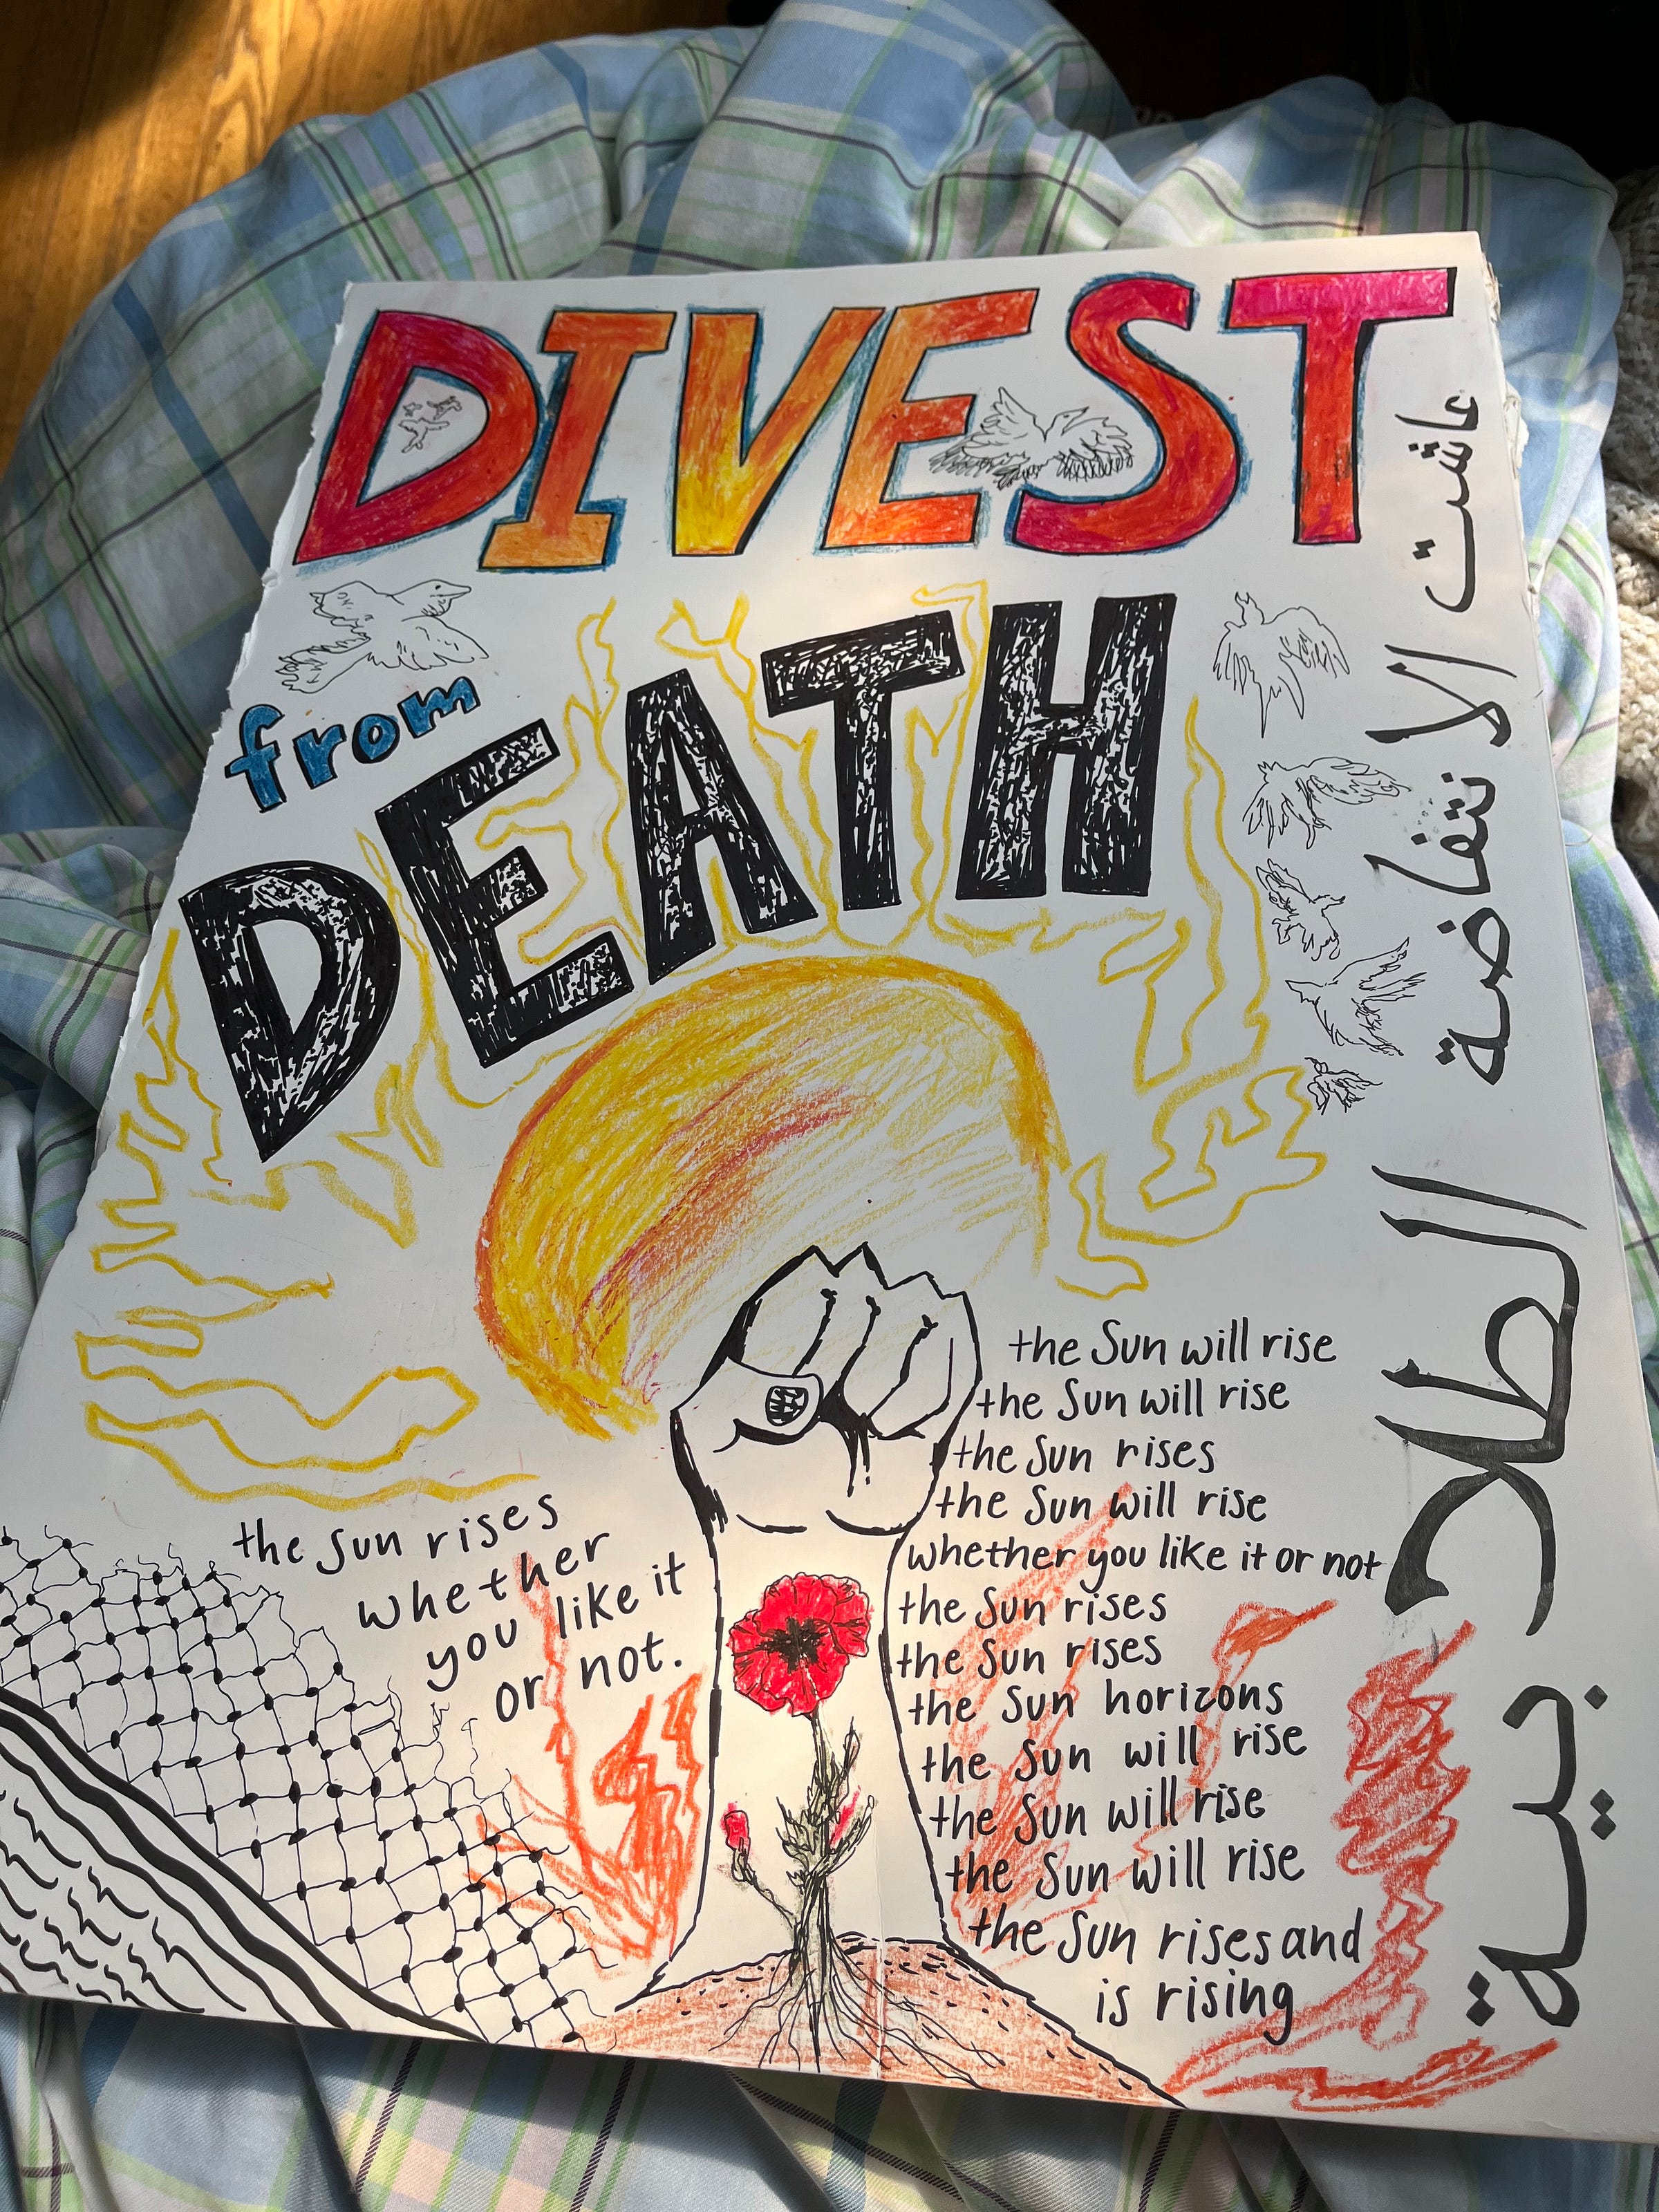 DIVEST
from
DEATH
عاشت الانتفاضة الطلابية
the Sun will rise
the Sun will rise
the Sun rises
the Sun will rise
whether you like it or not
the Sun rises
the Sun rises
the Sun horizons
the Sun will rise
the Sun will rise
the Sun will rise
the Sun rises and
is rising
the Sun rises
whether
you like it
or not.